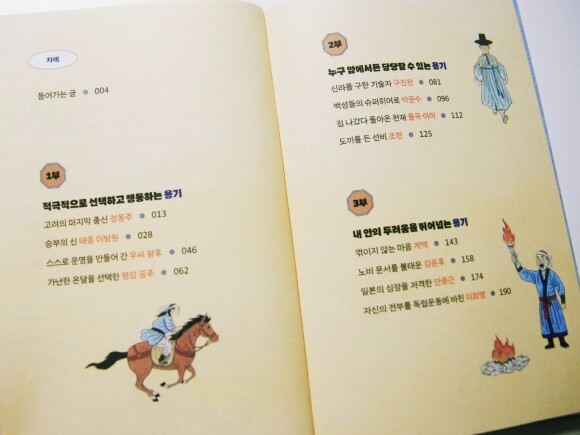 차례
들어가는 글 ● 004
1부
적극적으로 선택하고 행동하는 용기
고려의 마지막 충신 정몽주 ● 013
승부의 신 태종 이방원 ● 028
스스로 운명을 만들어 간 우씨 왕후 ● 046
가난한 온달을 선택한 평강 공주 ● 062
2부
누구 앞에서든 당당할 수 있는 용기
신라를 구한 기술자 구진천 ● 081
백성들의 슈퍼히어로 박문수 ● 096
집 나갔다 돌아온 천재 율곡 이이 ● 112
도끼를 든 선비 조헌 ● 125
3부
내 안의 두려움을 뛰어넘는 용기
꺾이지 않는 마음 계백 ● 143
노비 문서를 불태운 김윤후 ● 158
일본의 심장을 저격한 안중근 ● 174
자신의 전부를 독립운동에 바친 이회영 ● 190